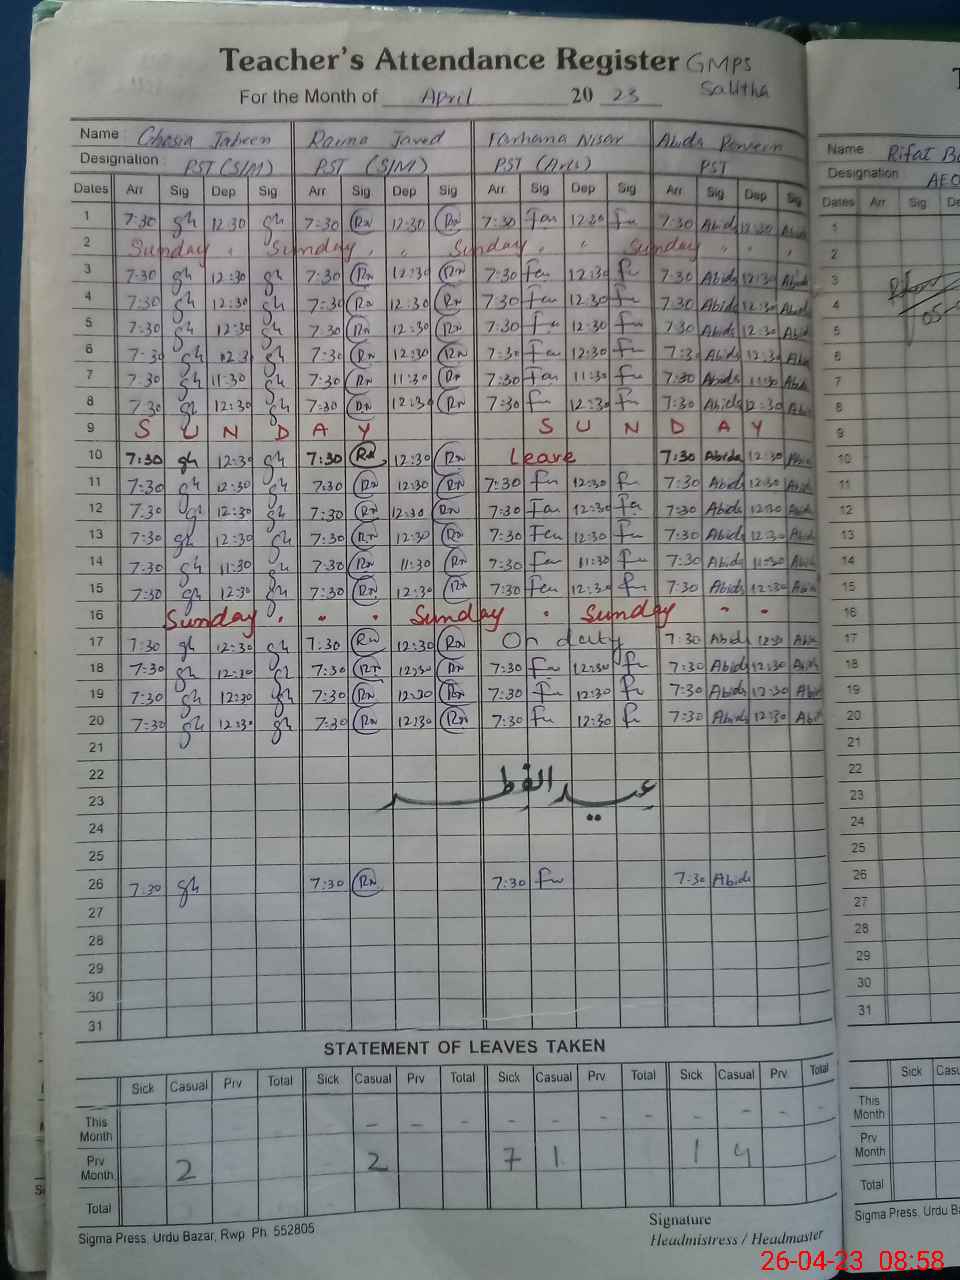 Teacher's Attendance Register GMPS
For the Month of April 20 23 Salitha
Name : Ghosia Jabeen Raima Javed Farhana Nisar Abida Parveen
Designation : PST (S/M) PST (S/M) PST (Arts) PST
Dates Arr Sig Dep Sig Arr Sig Dep Sig Arr Sig Dep Sig Arr Sig Dep Sig
1 7:30 gh 12:30 gh 7:30 Rn 12:30 Rn 7:30 Fan 12:30 fn 7:30 Abida 12:30 Abida
2 Sunday Sunday Sunday Sunday
3 7:30 gh 12:30 gh 7:30 Rn 12:30 Rn 7:30 Fan 12:30 fn 7:30 Abida 12:30 Abida
4 7:30 gh 12:30 gh 7:30 Rn 12:30 Rn 7:30 Fan 12:30 fn 7:30 Abida 12:30 Abida
5 7:30 gh 12:30 gh 7:30 Rn 12:30 Rn 7:30 Fan 12:30 fn 7:30 Abida 12:30 Abid
6 7:30 gh 12:3 gh 7:30 Rn 12:30 Rn 7:30 Fan 12:30 fn 7:3 Abida 12:30 Abida
7 7:30 gh 11:30 gh 7:30 Rn 11:30 Rn 7:30 Fan 11:30 fn 7:30 Abida 11:30 Abida
8 7:30 gh 12:30 gh 7:30 Rn 12:30 Rn 7:30 fn 12:30 fn 7:30 Abida 12:30 Abida
9 S U N D A Y S U N D A Y
10 7:30 gh 12:30 gh 7:30 Rn 12:30 Rn Leave 7:30 Abida 12:30 Abida
11 7:30 gh 12:30 gh 7:30 Rn 12:30 Rn 7:30 fn 12:30 fn 7:30 Abida 12:30 Abida
12 7:30 gh 12:30 gh 7:30 Rn 12:30 Rn 7:30 Fan 12:30 fn 7:30 Abida 12:30 Abida
13 7:30 gh 12:30 gh 7:30 Rn 12:30 Rn 7:30 Fan 12:30 fn 7:30 Abida 12:30 Abida
14 7:30 gh 11:30 gh 7:30 Rn 11:30 Rn 7:30 Fan 11:30 fn 7:30 Abida 11:30 Abida
15 7:30 gh 12:30 gh 7:30 Rn 12:30 Rn 7:30 Fan 12:30 fn 7:30 Abida 12:30 Abida
16 Sunday Sunday Sunday
17 7:30 gh 12:30 gh 7:30 Rn 12:30 Rn On duty 7:30 Abida 12:30 Abida
18 7:30 gh 12:30 gh 7:30 Rn 12:30 Rn 7:30 fn 12:30 fn 7:30 Abida 12:30 Abida
19 7:30 gh 12:30 gh 7:30 Rn 12:30 Rn 7:30 fn 12:30 fn 7:30 Abida 12:30 Abi
20 7:30 gh 12:30 gh 7:30 Rn 12:30 Rn 7:30 fn 12:30 fn 7:30 Abida 12:30 Abi
21
22
عید الفطر
23
24
25
26 7:30 gh 7:30 Rn 7:30 fn 7:30 Abida
27
28
29
30
31
STATEMENT OF LEAVES TAKEN
Sick Casual Prv Total Sick Casual Prv Total Sick Casual Prv Total Sick Casual Prv Total
This Month – – – – – – – – – –
Prv Month 2 2 7 1 1 4
Total
Sigma Press, Urdu Bazar, Rwp. Ph. 552805
Signature
Headmistress / Headmaster
Name Rifat
Designation AEO
Dates Arr Sig
1
2
3
4
5
6
7
8
9
10
11
12
13
14
15
16
17
18
19
20
21
22
23
24
25
26
27
28
29
30
31
Sick
This Month
Prv Month
Total
Sigma Press, Urdu
26-04-23 08:58